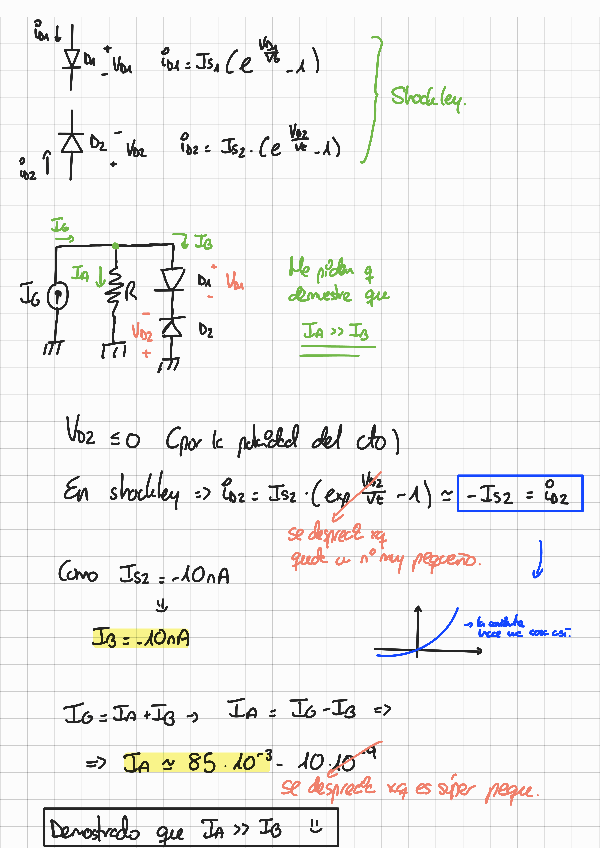 iD1 ↓
D1 + VD1 -
iD1 = IS1 (e^(VD1/Vt) - 1)
Shockley.
D2 - VD2 +
iD2 ↑
iD2 = IS2 · (e^(VD2/Vt) - 1)
IG
IB
IA
IG
R
D1 + VD1 -
- VD2 +
D2
Me piden q
demuestre que
IA >> IB
VD2 ≤ 0 (por la polaridad del cto)
En shockley => iD2 = IS2 · (exp VD2/Vt - 1) ≃ -IS2 = iD2
se desprecia xq
queda un nº muy pequeño.
Como IS2 = -10nA
IB = -10nA
→ la
hace una cosa así.
IG = IA + IB → IA = IG - IB =>
=> IA ≃ 85 · 10^-3 - 10·10^-9
se desprecia xq es súper peque.
Demostrado que IA >> IB